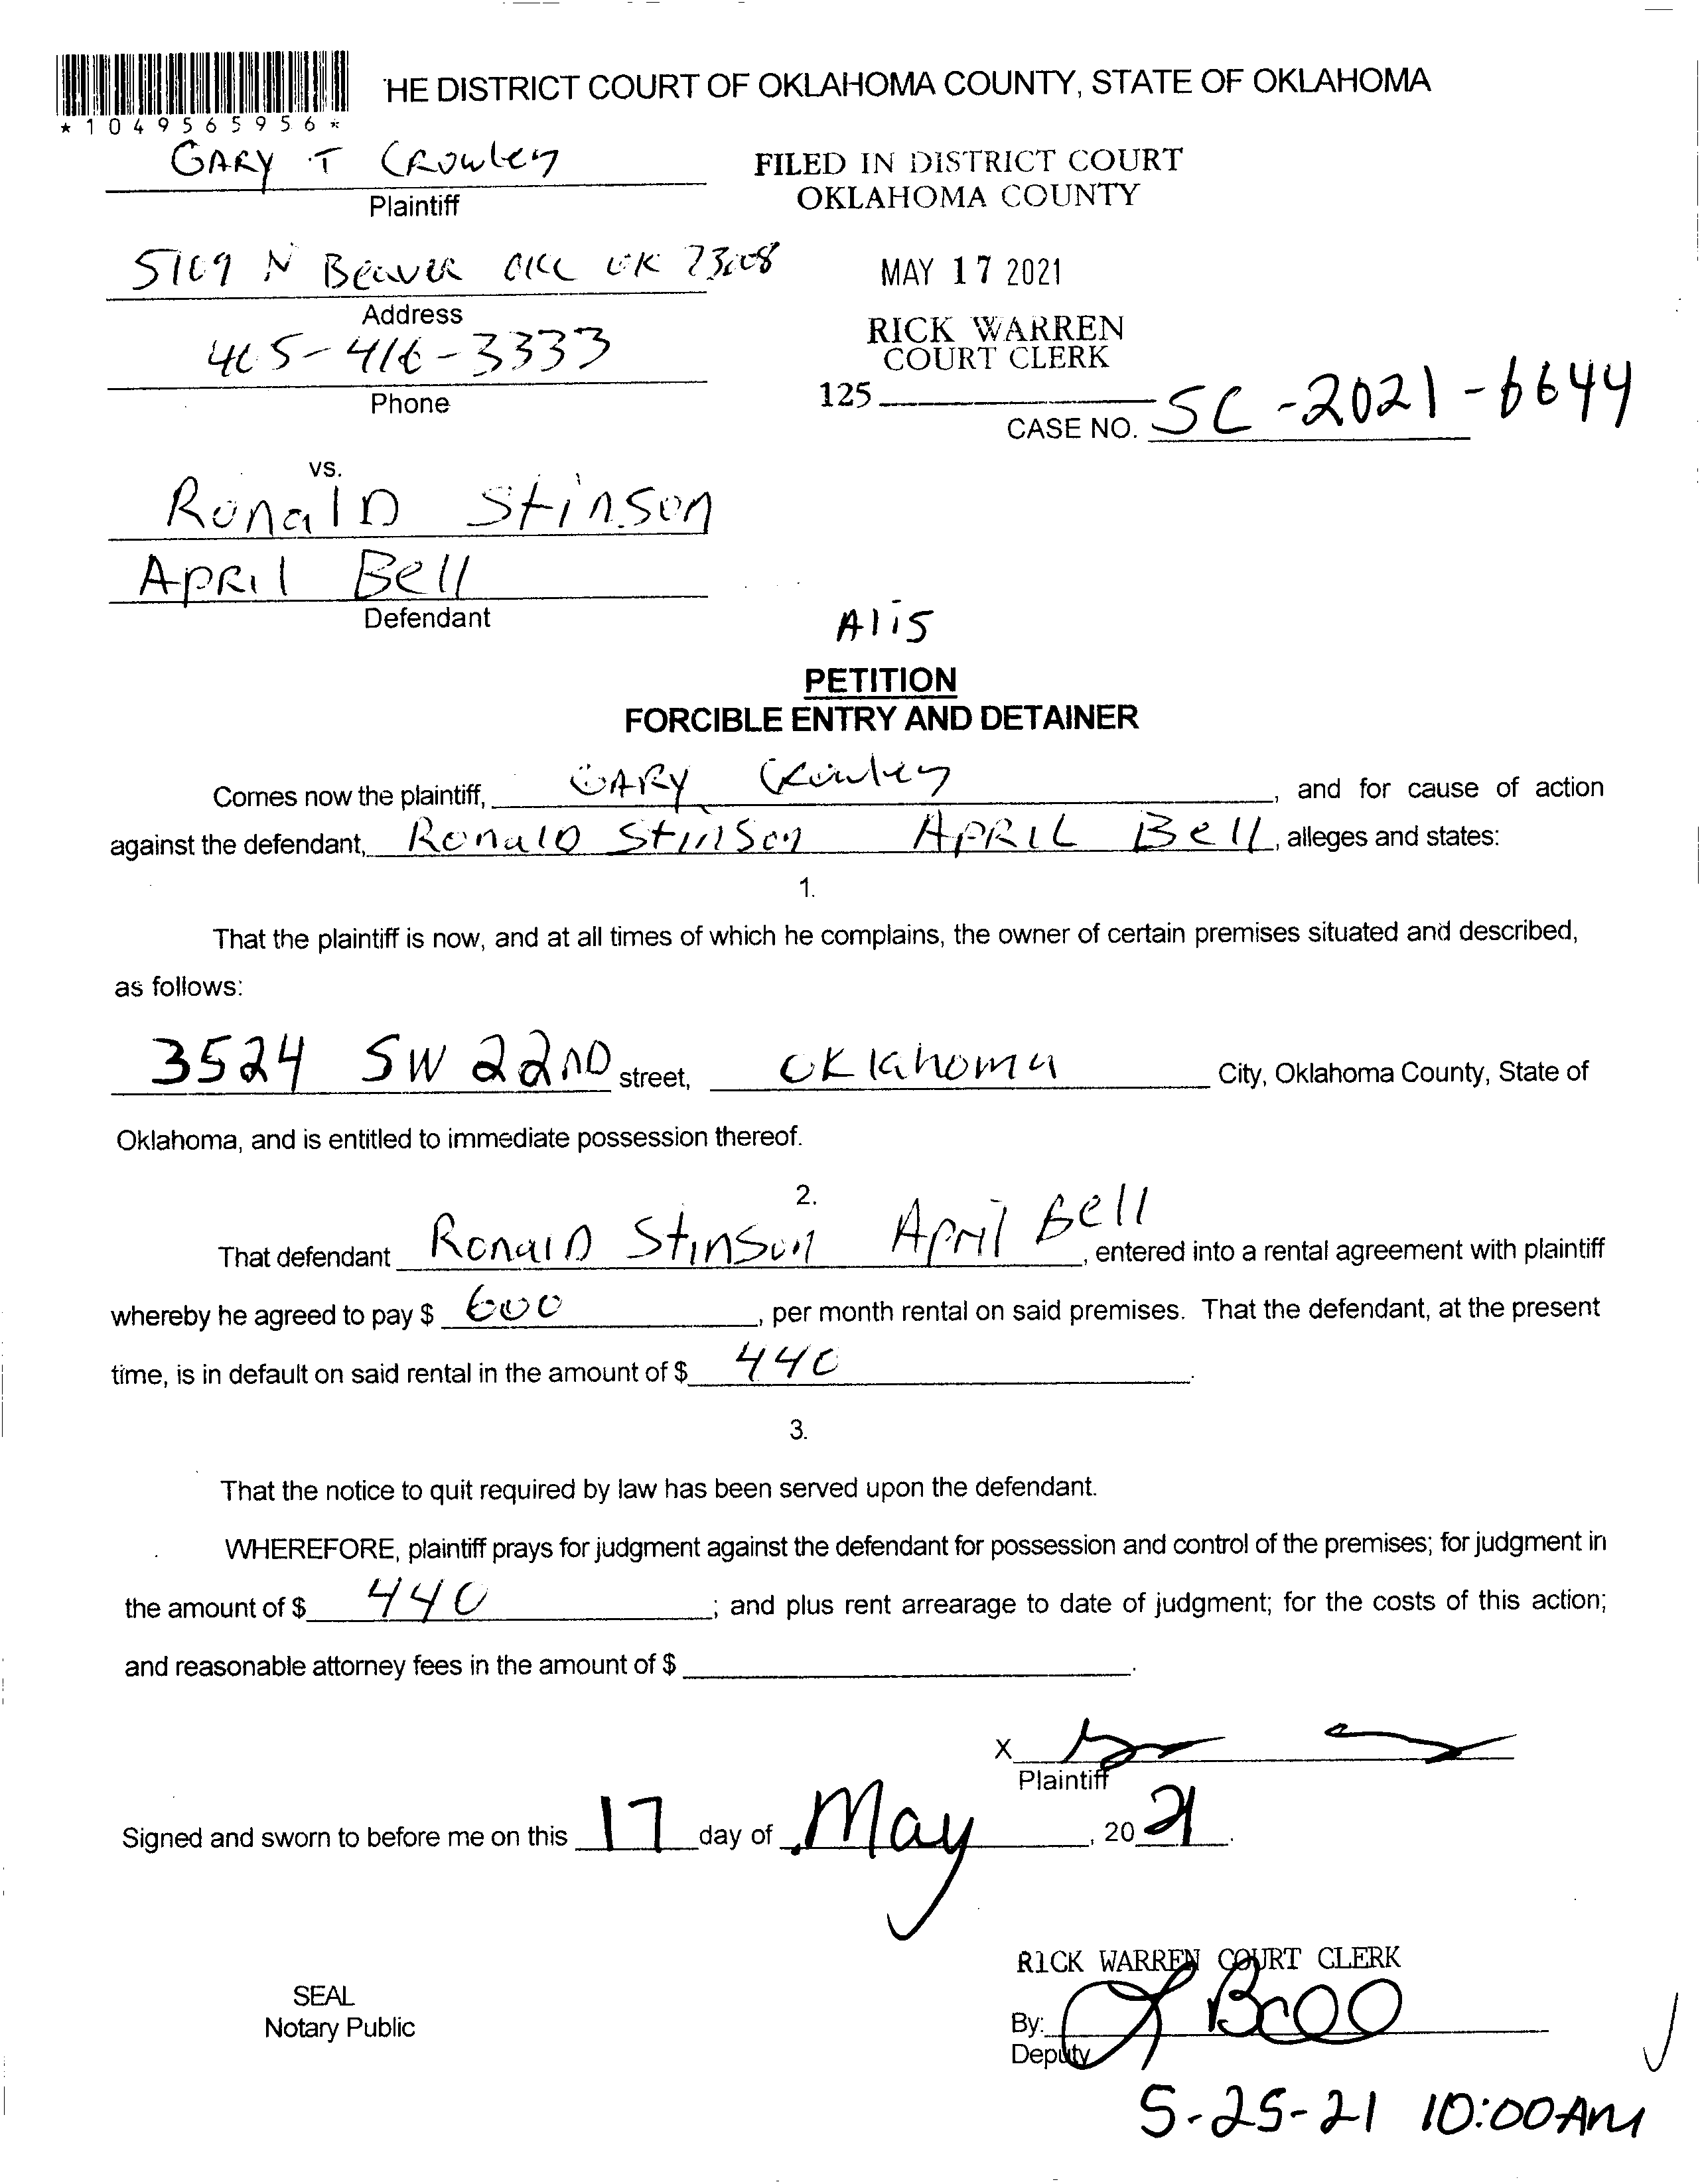 'HE DISTRICT COURT OF OKLAHOMA COUNTY, STATE OF OKLAHOMA
*1049565956*
GARY T CROWLEY
Plaintiff
FILED IN DISTRICT COURT
OKLAHOMA COUNTY
5109 N BEAVER OKC OK 73008
Address
MAY 17 2021
405-416-3333
Phone
RICK WARREN
COURT CLERK
125
CASE NO. SC-2021-6644
vs.
RonalD Stinson
APRIl Bell
Defendant
Alis
PETITION
FORCIBLE ENTRY AND DETAINER
Comes now the plaintiff, GARY Crowley, and for cause of action
against the defendant, RonalD Stinson APRIL Bell, alleges and states:
1.
That the plaintiff is now, and at all times of which he complains, the owner of certain premises situated and described,
as follows:
3524 SW 22ND street, OKlahoma City, Oklahoma County, State of
Oklahoma, and is entitled to immediate possession thereof.
2.
That defendant RonalD Stinson April Bell, entered into a rental agreement with plaintiff
whereby he agreed to pay $ 600, per month rental on said premises. That the defendant, at the present
time, is in default on said rental in the amount of $ 440.
3.
That the notice to quit required by law has been served upon the defendant.
WHEREFORE, plaintiff prays for judgment against the defendant for possession and control of the premises; for judgment in
the amount of $ 440; and plus rent arrearage to date of judgment; for the costs of this action;
and reasonable attorney fees in the amount of $ .
X
Plaintiff
Signed and sworn to before me on this 17 day of May, 2021.
RICK WARREN COURT CLERK
SEAL
Notary Public
By:
Deputy
5-25-21 10:00AM